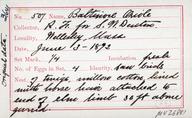 No. 507, Name, Baltimore Oriole
Collector, R. H. for S. W. Denton
Locality, Wellesley Mass
Date, June 13-1892
Set Mark, 74 Incubation, fresh
No. of Eggs in Set, 4 Identity,
Nest of twigs willow cotton lined
with horse hair attached to
end of elm limb 30 ft above
ground.